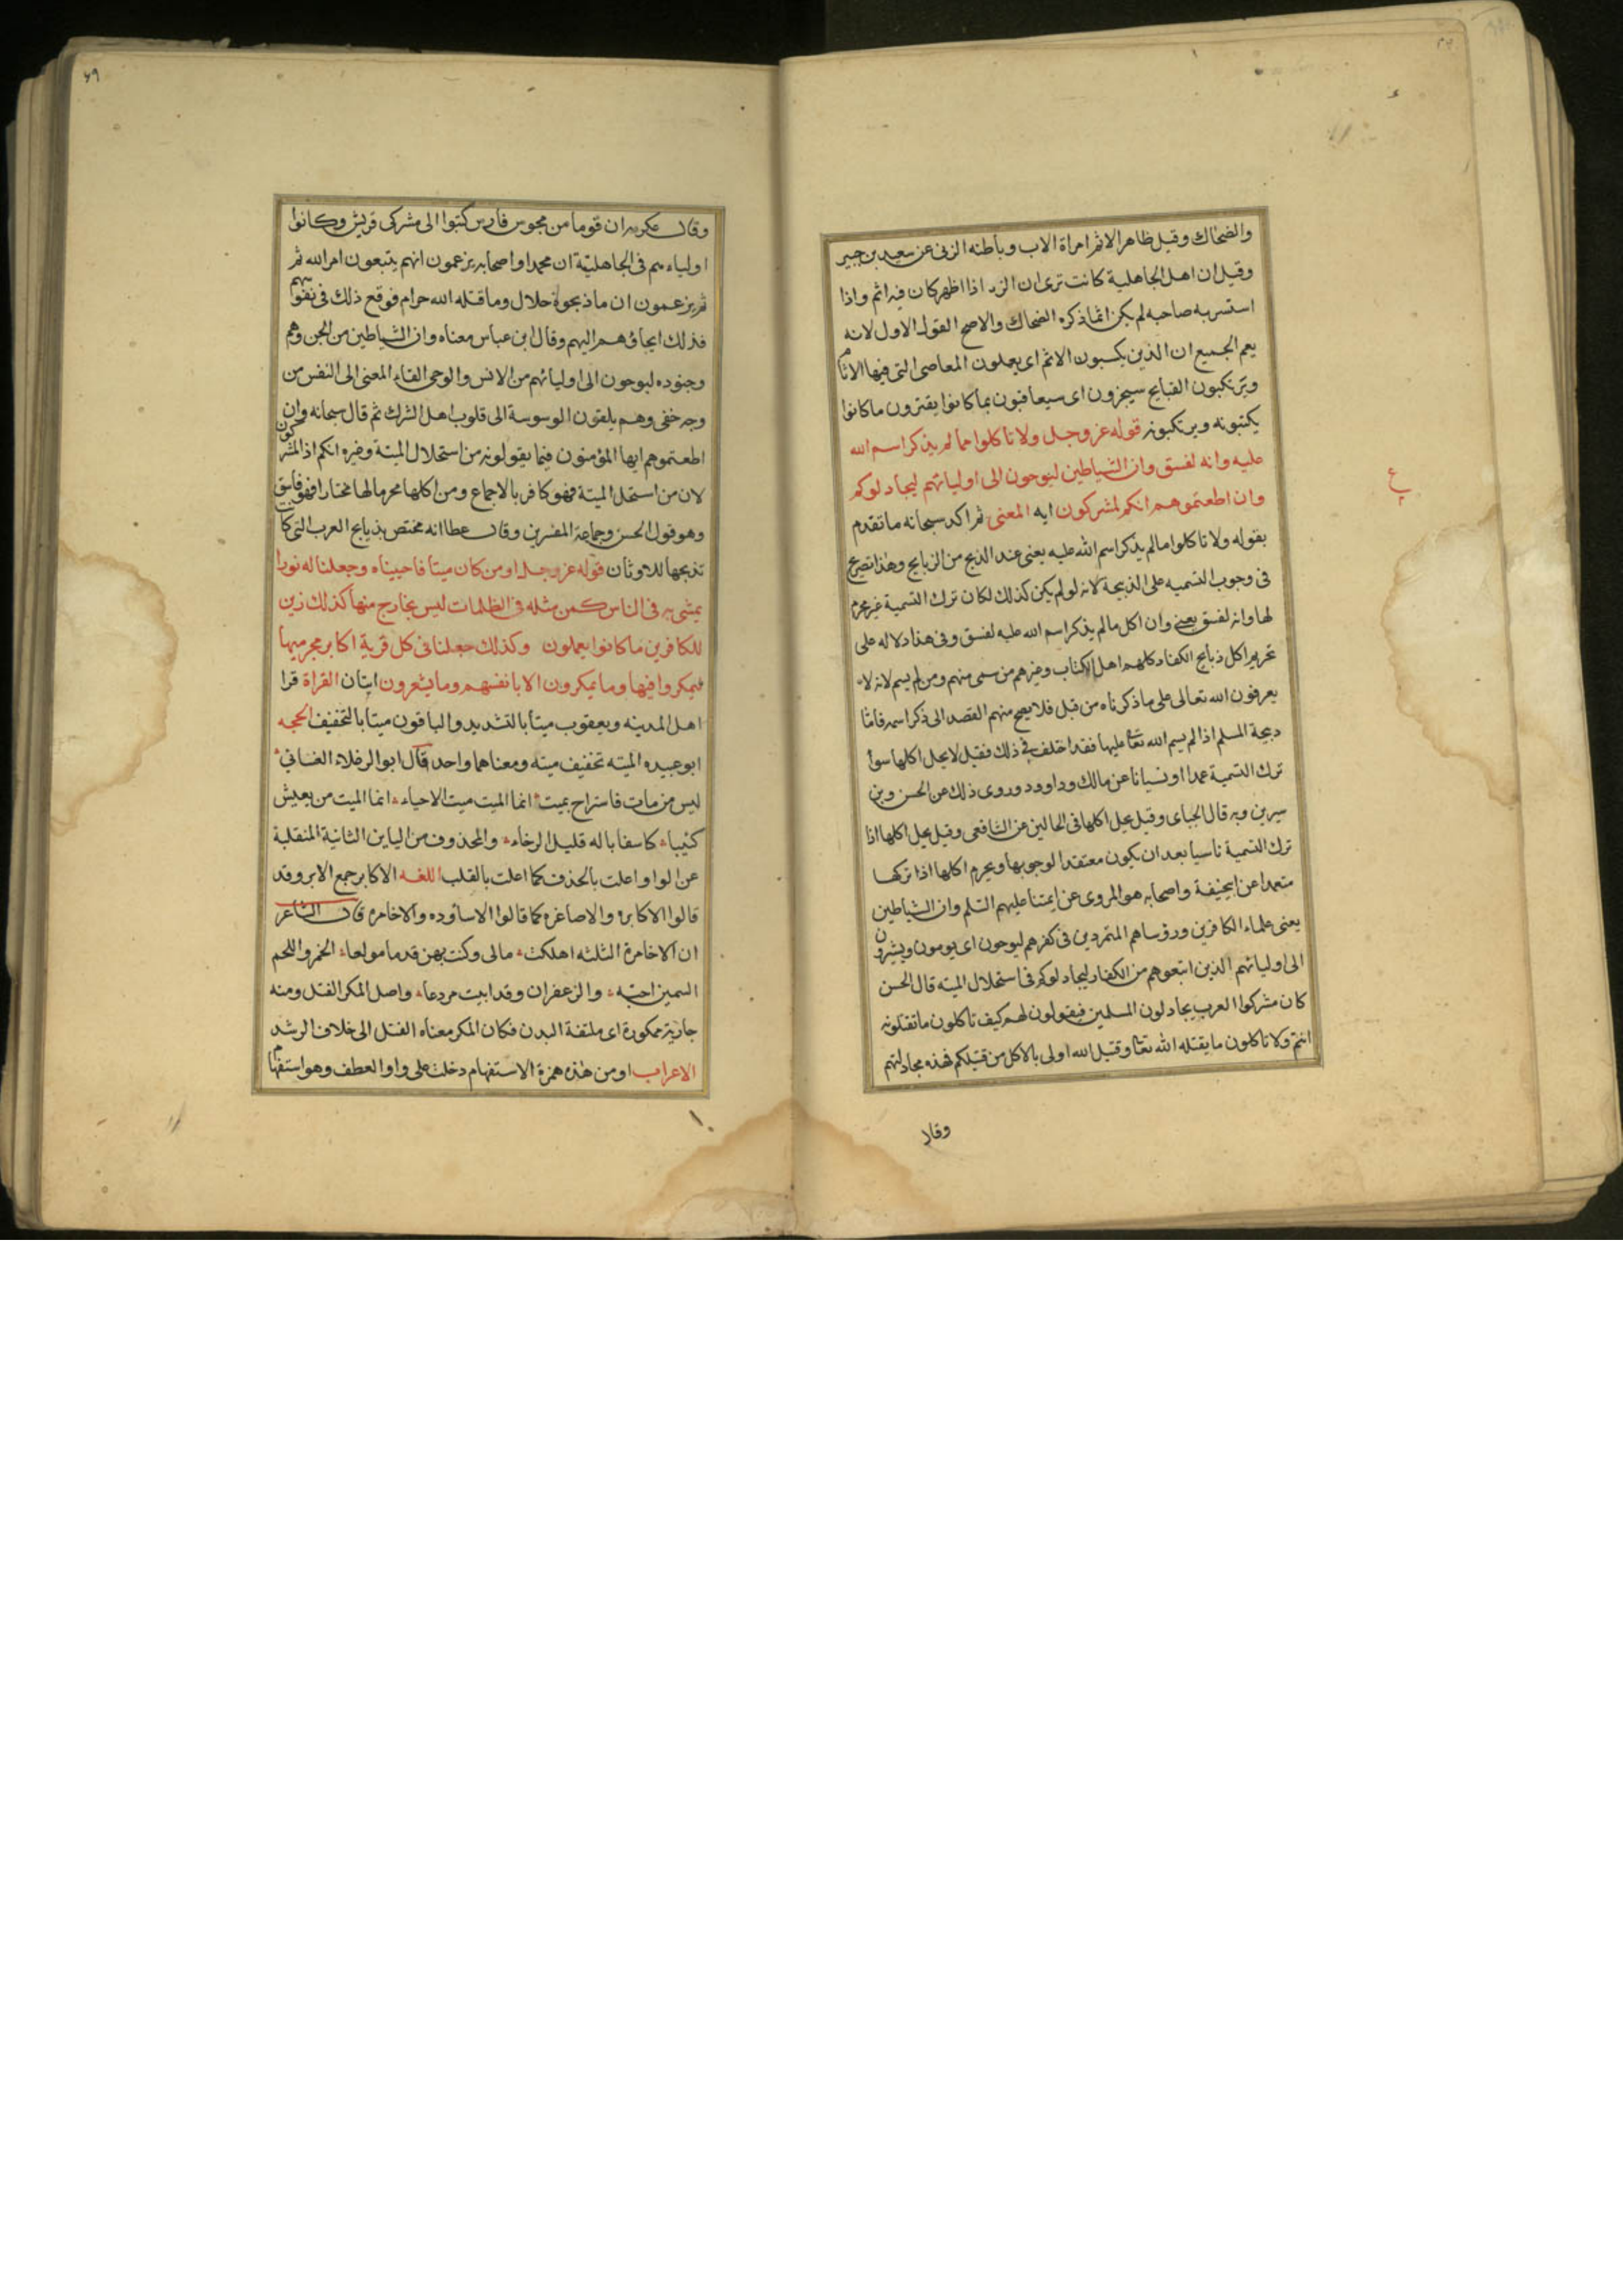 والضحاك وقيل ظاهر الاثم امراة الاب وباطنه الزنى عن سعيد بن جبير
وقيل ان اهل الجاهلية كانت ترى ان الزنا اذا اظهر كان فيه اثم واذا
استسر به صاحبه لم يكن اثما ذكره الضحاك والاصح القول الاول لانه
يعم الجميع ان الذين يكسبون الاثم اى يعملون المعاصى التى فيها الاثام
ويرتكبون القبايح سيجزون اى سيعاقبون بما كانوا يقترفون ما كانوا
يكتبونه ويرتكبونه قوله عز وجل ولا تاكلوا مما لم يذكر اسم الله
عليه وانه لفسق وان الشياطين ليوحون الى اوليائهم ليجادلوكم
وان اطعتموهم انكم لمشركون ايه المعنى ثم اكد سبحانه ما تقدم
بقوله ولا تاكلوا مما لم يذكر اسم الله عليه يعنى عند الذبح من الذبايح وهذا تصريح
فى وجوب التسميه على الذبيحة لانه لو لم يكن كذلك لكان ترك التسمية غير محرم
لها وانه لفسق يعنى وان اكل ما لم يذكر اسم الله عليه لفسق وفى هذا دلاله على
تحريم اكل ذبايح الكفار كلهم اهل الكتاب وغيرهم من سمى منهم ومن لم يسم لانه لا
يعرفون الله تعالى على ما ذكرناه من قبل فلا يصح منهم القصد الى ذكر اسمه فاما
ذبيحة المسلم اذا لم يسم الله تعا عليها فقد اختلف فى ذلك فقيل لا يحل اكلها سوا
ترك التسمية عمدا او نسيانا عن مالك وداوود وروى ذلك عن الحسن وبن
سيرين وبه قال الجباى وقيل يحل اكلها فى الحالين عن الشافعى وقيل يحل اكلها اذا
ترك التسمية ناسيا بعد ان يكون معتقدا لوجوبها ويحرم اكلها اذا تركها
متعمدا عن ابيحنيفة واصحابه هو المروى عن ايمتنا عليهم السلم وان الشياطين
يعنى علماء الكافرين ورؤساهم المتمردين فى كفرهم ليوحون اى يومون ويشيرون
الى اوليائهم الذين اتبعوهم من الكفار ليجادلوكم فى استحلال الميته قال الحسن
كان مشركوا العرب يجادلون المسلمين فيقولون لهم كيف تاكلون ما تقتلونه
انتم ولا تاكلون ما يقتله الله تعا وقتيل الله اولى بالاكل من قتيلكم فهذه مجادلتهم
وقال
٤٩
وقال عكرمه ان قوما من مجوس فارس كتبوا الى مشركى قريش وكانوا
اولياءهم فى الجاهلية ان محمدا واصحابه يزعمون انهم يتبعون امر الله ثم
ثم يزعمون ان ما ذبحوه حلال وما قتله الله حرام فوقع ذلك فى نفوسهم
فذلك ايحاؤهم اليهم وقال ابن عباس معناه وان الشياطين من الجن وهم
وجنوده ليوحون الى اوليائهم من الانس والوحى القاء المعنى الى النفس من
وجه خفى وهم يلقون الوسوسة الى قلوب اهل الشرك ثم قال سبحانه وان
اطعتموهم ايها المؤمنون فيما يقولونه من استحلال الميتة وغيره انكم اذا لمشركون
لان من استحل الميتة فهو كافر بالاجماع ومن اكلها محرما لها مختارا فهو فاسق
وهو قول الحسن وجماعة المفسرين وقال عطا انه مختص بذبايح العرب التى كانت
تذبحها للاوثان قوله عز وجل اومن كان ميتا فاحييناه وجعلنا له نورا
يمشى به فى الناس كمن مثله فى الظلمات ليس بخارج منها كذلك زين
للكافرين ما كانوا يعملون وكذلك جعلنا فى كل قرية اكابر مجرميها
ليمكروا فيها وما يمكرون الا بانفسهم وما يشعرون ايتان القراة قرا
اهل المدينه ويعقوب ميتا بالتشديد والباقون ميتا بالتخفيف الحجه
ابو عبيده الميته تخفيف ميته ومعناهما واحد قال ابو الرغلاء الغسانى
ليس من مات فاستراح بميت انما الميت ميت الاحياء انما الميت من يعيش
كئيبا كاسفا باله قليل الرخاء والمحذوف من الياين الثانية المنقلبة
عن الواو اعلت بالحذف كما اعلت بالقلب اللغه الاكابر جمع الاكبر وقد
قالوا الاكابره والاصاغره كما قالوا الاساوده والاخامره قال الشاعر
ان الاخامرة الثلثه اهلكت مالى وكنت بهن قدما مولعا الخمر واللحم
السمين احبه والزعفران وقد ابيت مردعا واصل المكر الفتل ومنه
جارية ممكورة اى ملتفة البدن فكان المكر معناه الفتل الى خلاف الرشد
الاعراب اومن هذه همزة الاستفهام دخلت على واو العطف وهو استفهام